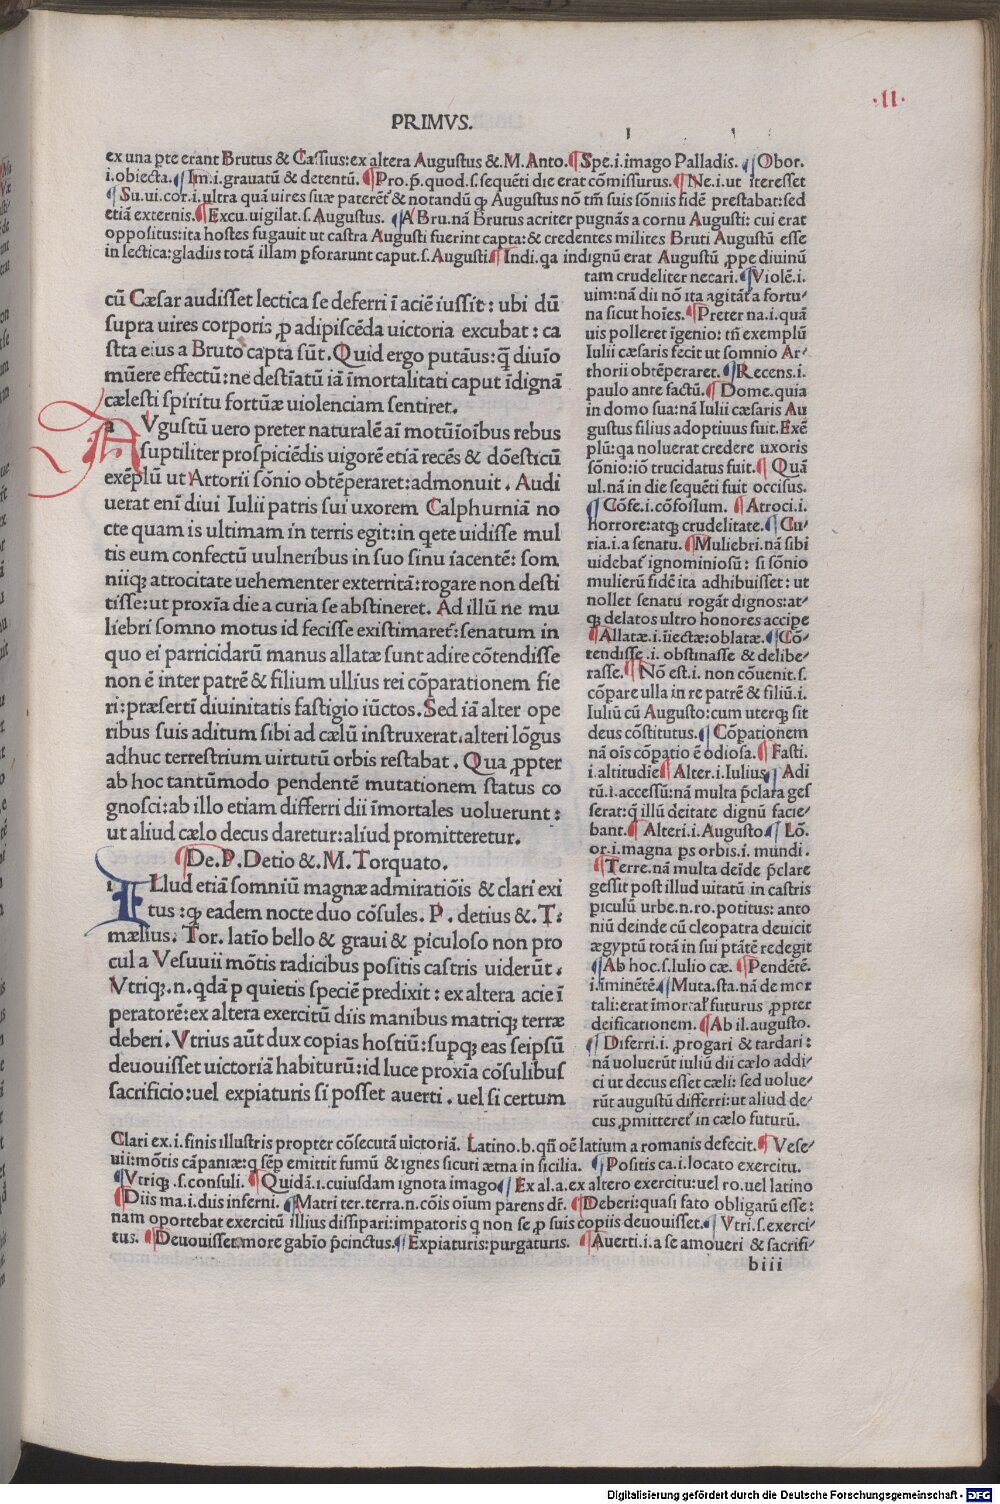 ·II·
PRIMVS.
ex una pte erant Brutus & Cassius: ex altera Augustus &. M. Anto. ¶ Spe.i.imago Palladis. ¶ Obor.
i.obiecta. ¶ Im.i.grauatū & detentū. ¶ Pro.p̄.quod.s.sequēti die erat cōmissurus. ¶ Ne.i.ut iteresset
¶ Su.ui.cor.i.ultra quā uires suæ paterēt̄ & notandū ꝙ Augustus nō tm̄ suis sōniis fidē prestabat: sed
etiā externis. ¶ Excu.uigilat.s.Augustus. ¶ A Bru.nā Brutus acriter pugnās a cornu Augusti: cui erat
oppositus: ita hostes fugauit ut castra Augusti fuerint capta: & credentes milites Bruti Augustū esse
in lectica: gladiis totā illam ꝑforarunt caput.s.Augusti ¶ Indi.qa indignū erat Augustū ꝓpe diuinū
cū Cæsar audisset lectica se deferri ī aciē iussit: ubi dū
supra uires corporis ꝓ adipiscēda uictoria excubat: ca
stra eius a Bruto capta sūt. Quid ergo putāus: q̄ diuīo
mūere effectū: ne destīatū iā īmortalitati caput īdignā
cælesti spiritu fortūæ uiolenciam sentiret.
a Vgustū uero preter naturalē aī motū ī oībus rebus
suptiliter prospiciēdis uigorē etiā recēs & dōesticū
exēplū ut Artorii sōnio obtēperaret: admonuit. Audi
uerat enī diui Iulii patris sui uxorem Calphurniā no
cte quam is ultimam in terris egit: in qete uidisse mul
tis eum confectū uulneribus in suo sinu iacentē: som
niiq; atrocitate uehementer exterritā: rogare non desti
tisse: ut proxīa die a curia se abstineret. Ad illū ne mu
liebri somno motus id fecisse existimaret̄: senatum in
quo ei parricidarū manus allatæ sunt adire cōtendisse
non ē inter patrē & filium ullius rei cōparationem fie
ri: præsertī diuinitatis fastigio iūctos. Sed iā alter ope
ribus suis aditum sibi ad cælū instruxerat. alteri lōgus
adhuc terrestrium uirtutū orbis restabat. Qua ꝓpter
ab hoc tantūmodo pendentē mutationem status co
gnosci: ab illo etiam differri dii īmortales uoluerunt:
ut aliud cælo decus daretur: aliud promitteretur.
¶ De. P. Detio &. M. Torquato.
i Llud etiā somniū magnæ admiratiōis & clari exi
tus: ꝙ eadem nocte duo cōsules. P. detius &. T.
mælius. Tor. latīo bello & graui & piculoso non pro
cul a Vesuuii mōtis radicibus positis castris uiderūt.
Vtriq;.n.qdā p quietis speciē predixit: ex altera acie ī
peratorē: ex altera exercitū diis manibus matriq; terræ
deberi. Vtrius aūt dux copias hostiū: supq; eas seipsū
deuouisset uictoriā habiturū: id luce proxīa cōsulibus
sacrificio: uel expiaturis si posset auerti. uel si certum
tam crudeliter necari. ¶ Violē.i.
uim: nā dii nō ita agitāt̄ a fortu-
na sicut hoīes. ¶ Preter na.i.quā
uis polleret īgenio: tn̄ exemplū
Iulii cæsaris fecit ut somnio Ar-
thorii obtēperaret. ¶ Recens.i.
paulo ante factū. ¶ Dome.quia
in domo sua: nā Iulii cæsaris Au
gustus filius adoptiuus fuit. Exē
plū: qa noluerat credere uxoris
sōnio: iō trucidatus fuit. ¶ Quā
ul.nā in die sequēti fuit occisus.
¶ Cōfe.i.cōfossum. ¶ Atroci.i.
horrore: atq; crudelitate. ¶ Cu-
ria.i.a senatu. ¶ Muliebri.nā sibi
uidebat̄ ignominiosū: si sōnio
mulierū fidē ita adhibuisset: ut
nollet senatū rogāt dignos: at-
q; delatos ultro honores accipe
¶ Allatæ.i.īiectæ: oblatæ. ¶ Cō-
tendisse.i.obstinasse & delibe-
rasse. ¶ Nō est.i.non cōuenit.s.
cōpare ulla in re patrē & filiū.i.
Iuliū cū Augusto: cum uterq; sit
deus cōstitutus. ¶ Cōpationem
nā oīs cōpatio ē odiosa. ¶ Fasti.
i.altitudīe ¶ Alter.i.Iulius ¶ Adi
tū.i.accessū: nā multa p̄clara ges
serat: q̄ illū deitate dignū facie-
bant. ¶ Alteri.i.Augusto ¶ Lō.
or.i.magna ps orbis.i.mundi.
¶ Terre.nā multa deīde p̄clare
gessit post illud uitatū in castris
piculū urbe.n.ro.potitus: anto
niū deinde cū cleopatra deuicit
ægyptū totā in sui ptātē redegit
¶ Ab hoc.s.Iulio cæ. ¶ Pendētē.
i.īminētē. ¶ Muta.sta.nā de mor
tali: erat īmortal' futurus ꝓpter
deificationem. ¶ Ab il.augusto.
¶ Diferri.i.ꝓrogari & tardari:
nā uoluerūt iuliū dii cælo addi-
ci ut decus esset cæli: sed uolue-
rūt augustū differri: ut aliud de-
cus ꝓmitteret̄ in cælo futurū.
Clari ex.i.finis illustris propter cōsecutā uictoriā. Latino.b.qn̄ oē latium a romanis defecit. ¶ Vese-
uii: mōtis cāpaniæ: q sēp emittit fumū & ignes sicuti ætna in sicilia. ¶ Positis ca.i.locato exercitu.
¶ Vtriq;.s.consuli. ¶ Quidā.i.cuiusdam ignota imago ¶ Ex al.a.ex altero exercitu: uel ro.uel latino
¶ Diis ma.i.diis inferni. ¶ Matri ter.terra.n.cōis oium parens df̄. ¶ Deberi: quasi fato obligatū esse:
nam oportebat exercitū illius dissipari: impatoris q non se ꝓ suis copiis deuouisset. ¶ Vtri.s.exerci-
tus. ¶ Deuouisset.more gabīo p̄cinctus. ¶ Expiaturis: purgaturis. ¶ Auerti.i.a se amoueri & sacrifi-
biii
Digitalisierung gefördert durch die Deutsche Forschungsgemeinschaft - DFG